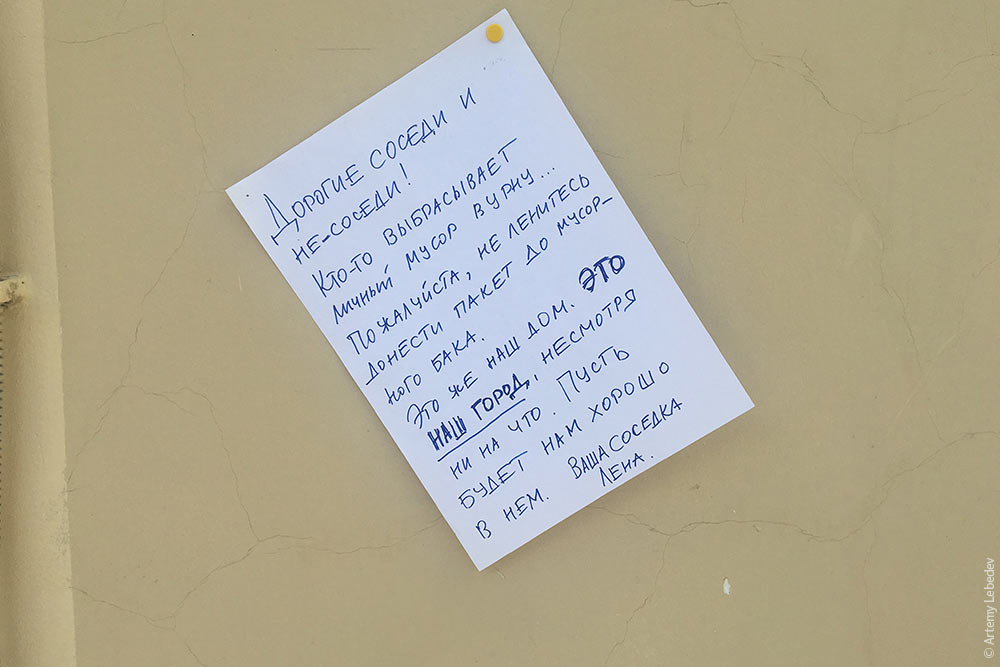 Дорогие соседи и
не-соседи!
Кто-то выбрасывает
личный мусор в урну...
Пожалуйста, не ленитесь
донести пакет до мусор-
ного бака.
Это же наш дом. Это
наш город, несмотря
ни на что. Пусть
будет нам хорошо
в нем. Ваша соседка
Лена.
© Artemy Lebedev